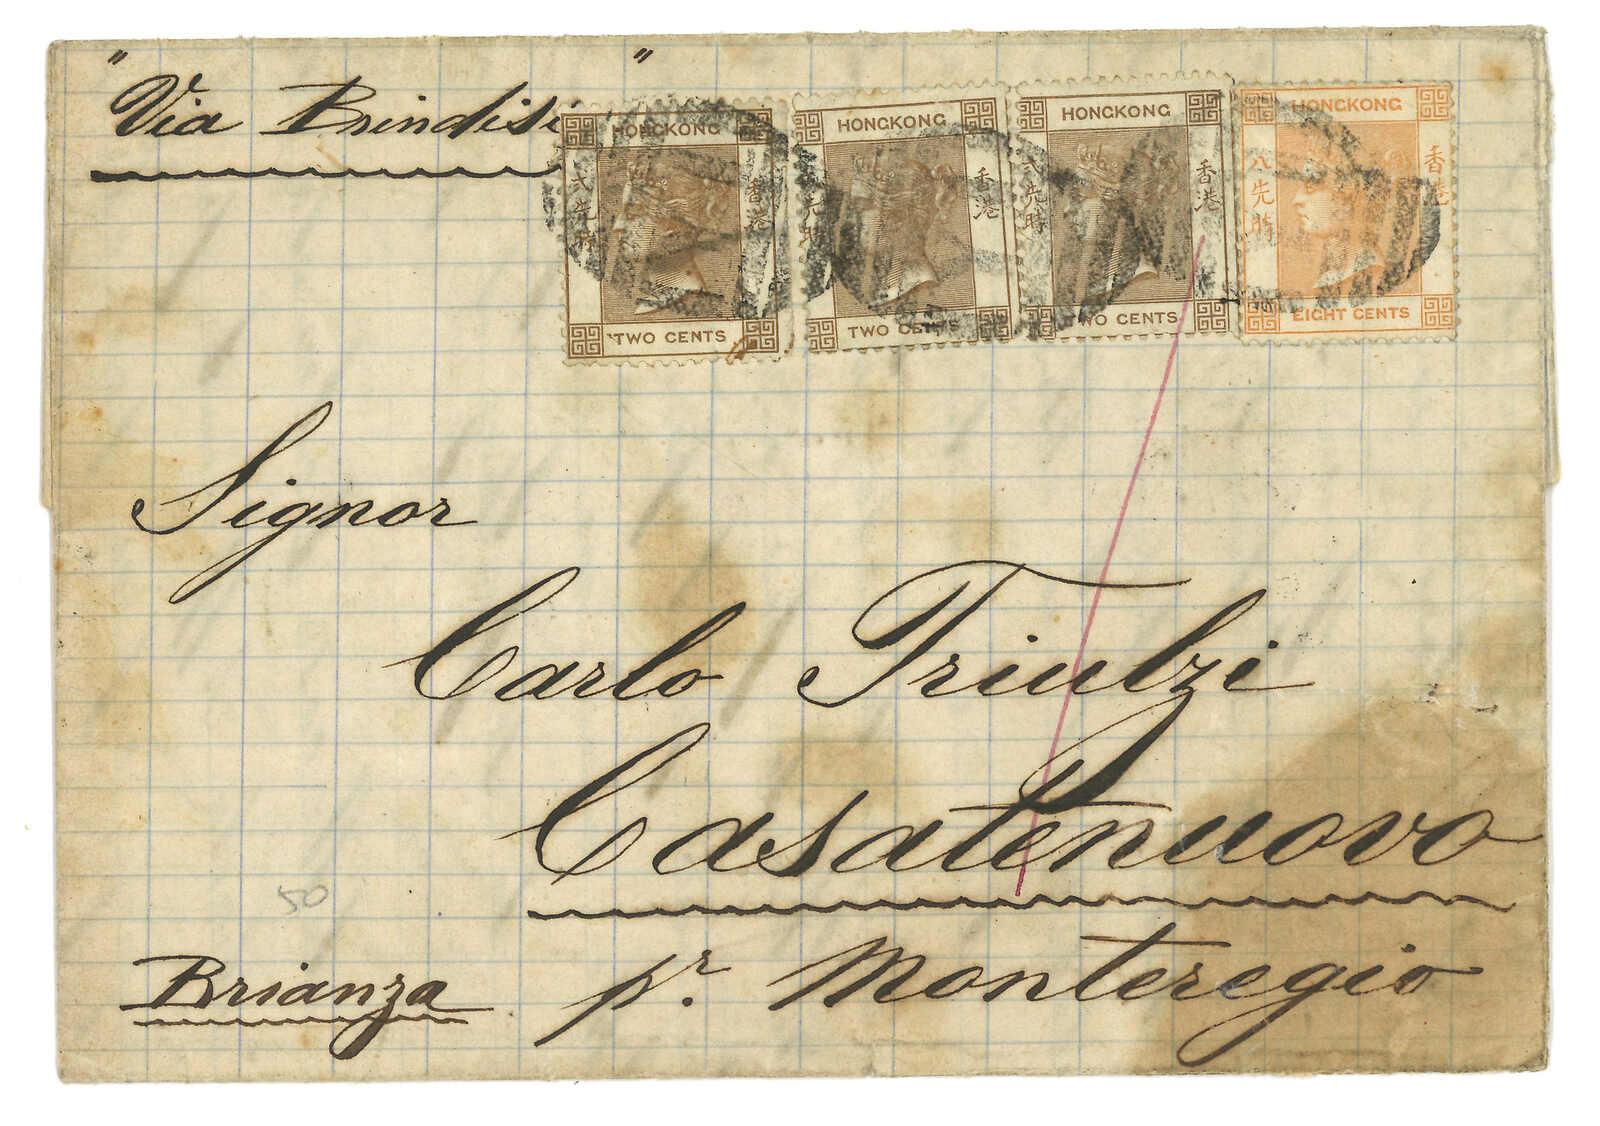 "Via Brindisi"
HONGKONG
弍先時
香港
TWO CENTS
HONGKONG
先時
香港
TWO CENTS
HONGKONG
弍先時
香港
TWO CENTS
HONGKONG
八先時
香港
EIGHT CENTS
Signor
Carlo Triulzi
Casatenuovo
50
Brianza
pr. Monteregio